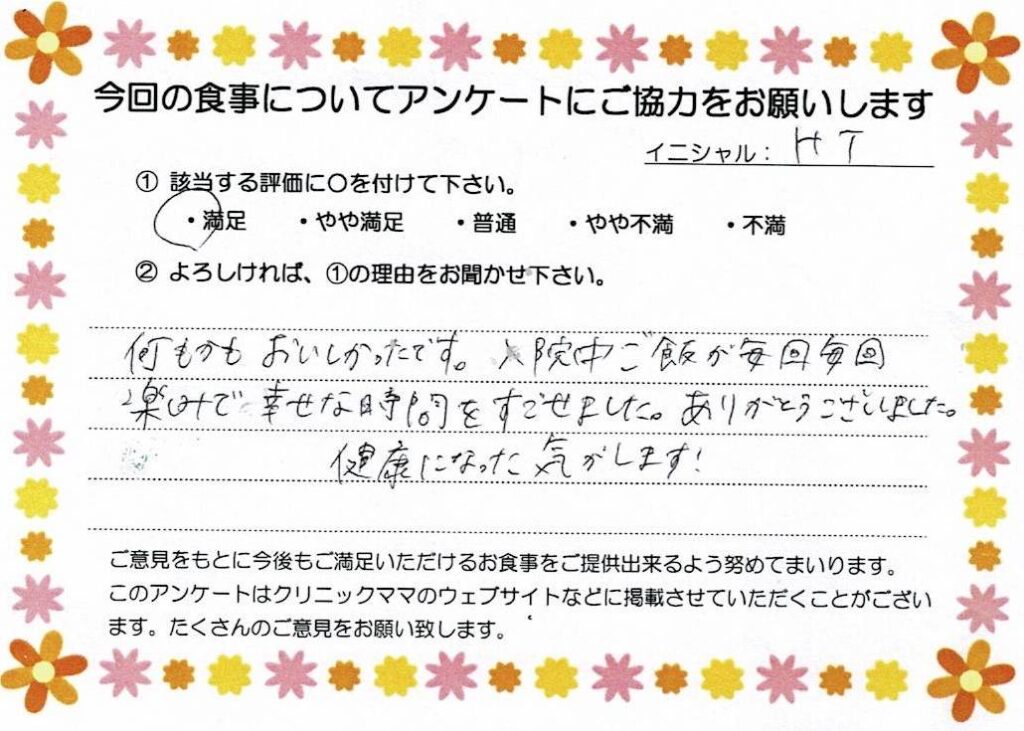 今回の食事についてアンケートにご協力をお願いします
イニシャル： H T
① 該当する評価に〇を付けて下さい。
・満足 ・やや満足 ・普通 ・やや不満 ・不満
② よろしければ、①の理由をお聞かせ下さい。
何もかも おいしかったです。入院中ご飯が毎回毎回
楽みで幸せな時間をすごせました。ありがとうございました。
健康になった気がします!
ご意見をもとに今後もご満足いただけるお食事をご提供出来るよう努めてまいります。
このアンケートはクリニックママのウェブサイトなどに掲載させていただくことがござい
ます。たくさんのご意見をお願い致します。